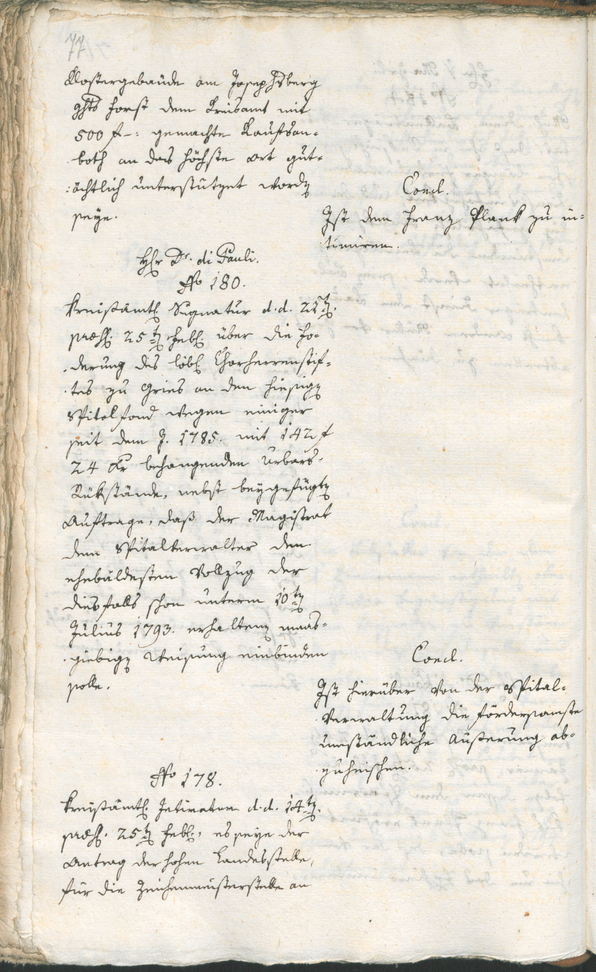 77
Klostergebäude am Josephsberg
ghts Forst dem Kreisamt mit
500 f: gemachte Kaufsan-
both an das höchste Ort gut-
ächtlich unterstützet wordn
seye.
Concl.
Ist dem Franz Plank zu in-
timiren.
Hr Dr. di Pauli.
No 180.
Kreisämtl. Signatur d.d. 21tn.
praes. 25tn Febl. über die Fo-
derung des löbl. Chorherrenstif-
tes zu Gries an den hiesign
Spitalfond wegen einiger
seit dem J. 1785. mit 142 f
24 Kr behangenden Urbars-
Rükstände, nebst beygefügtn
Auftrage, daß der Magistrat
dem Spitalverwalter den
ehebäldesten Vollzug der
diesfalls schon unterm 10tn
Julius 1793. erhaltenn maas-
giebign Weisung einbinden
solle.
Concl.
Ist hierüber von der Spital-
Verwaltung die fördersamste
umständliche Äußerung ab-
zuheischen.
No 178.
Kreisämtl. Intimatum d.d. 14tn.
praes. 25tn Febl., es seye der
Antrag der hohen Landesstelle,
für die Zeichenmeistersstelle an